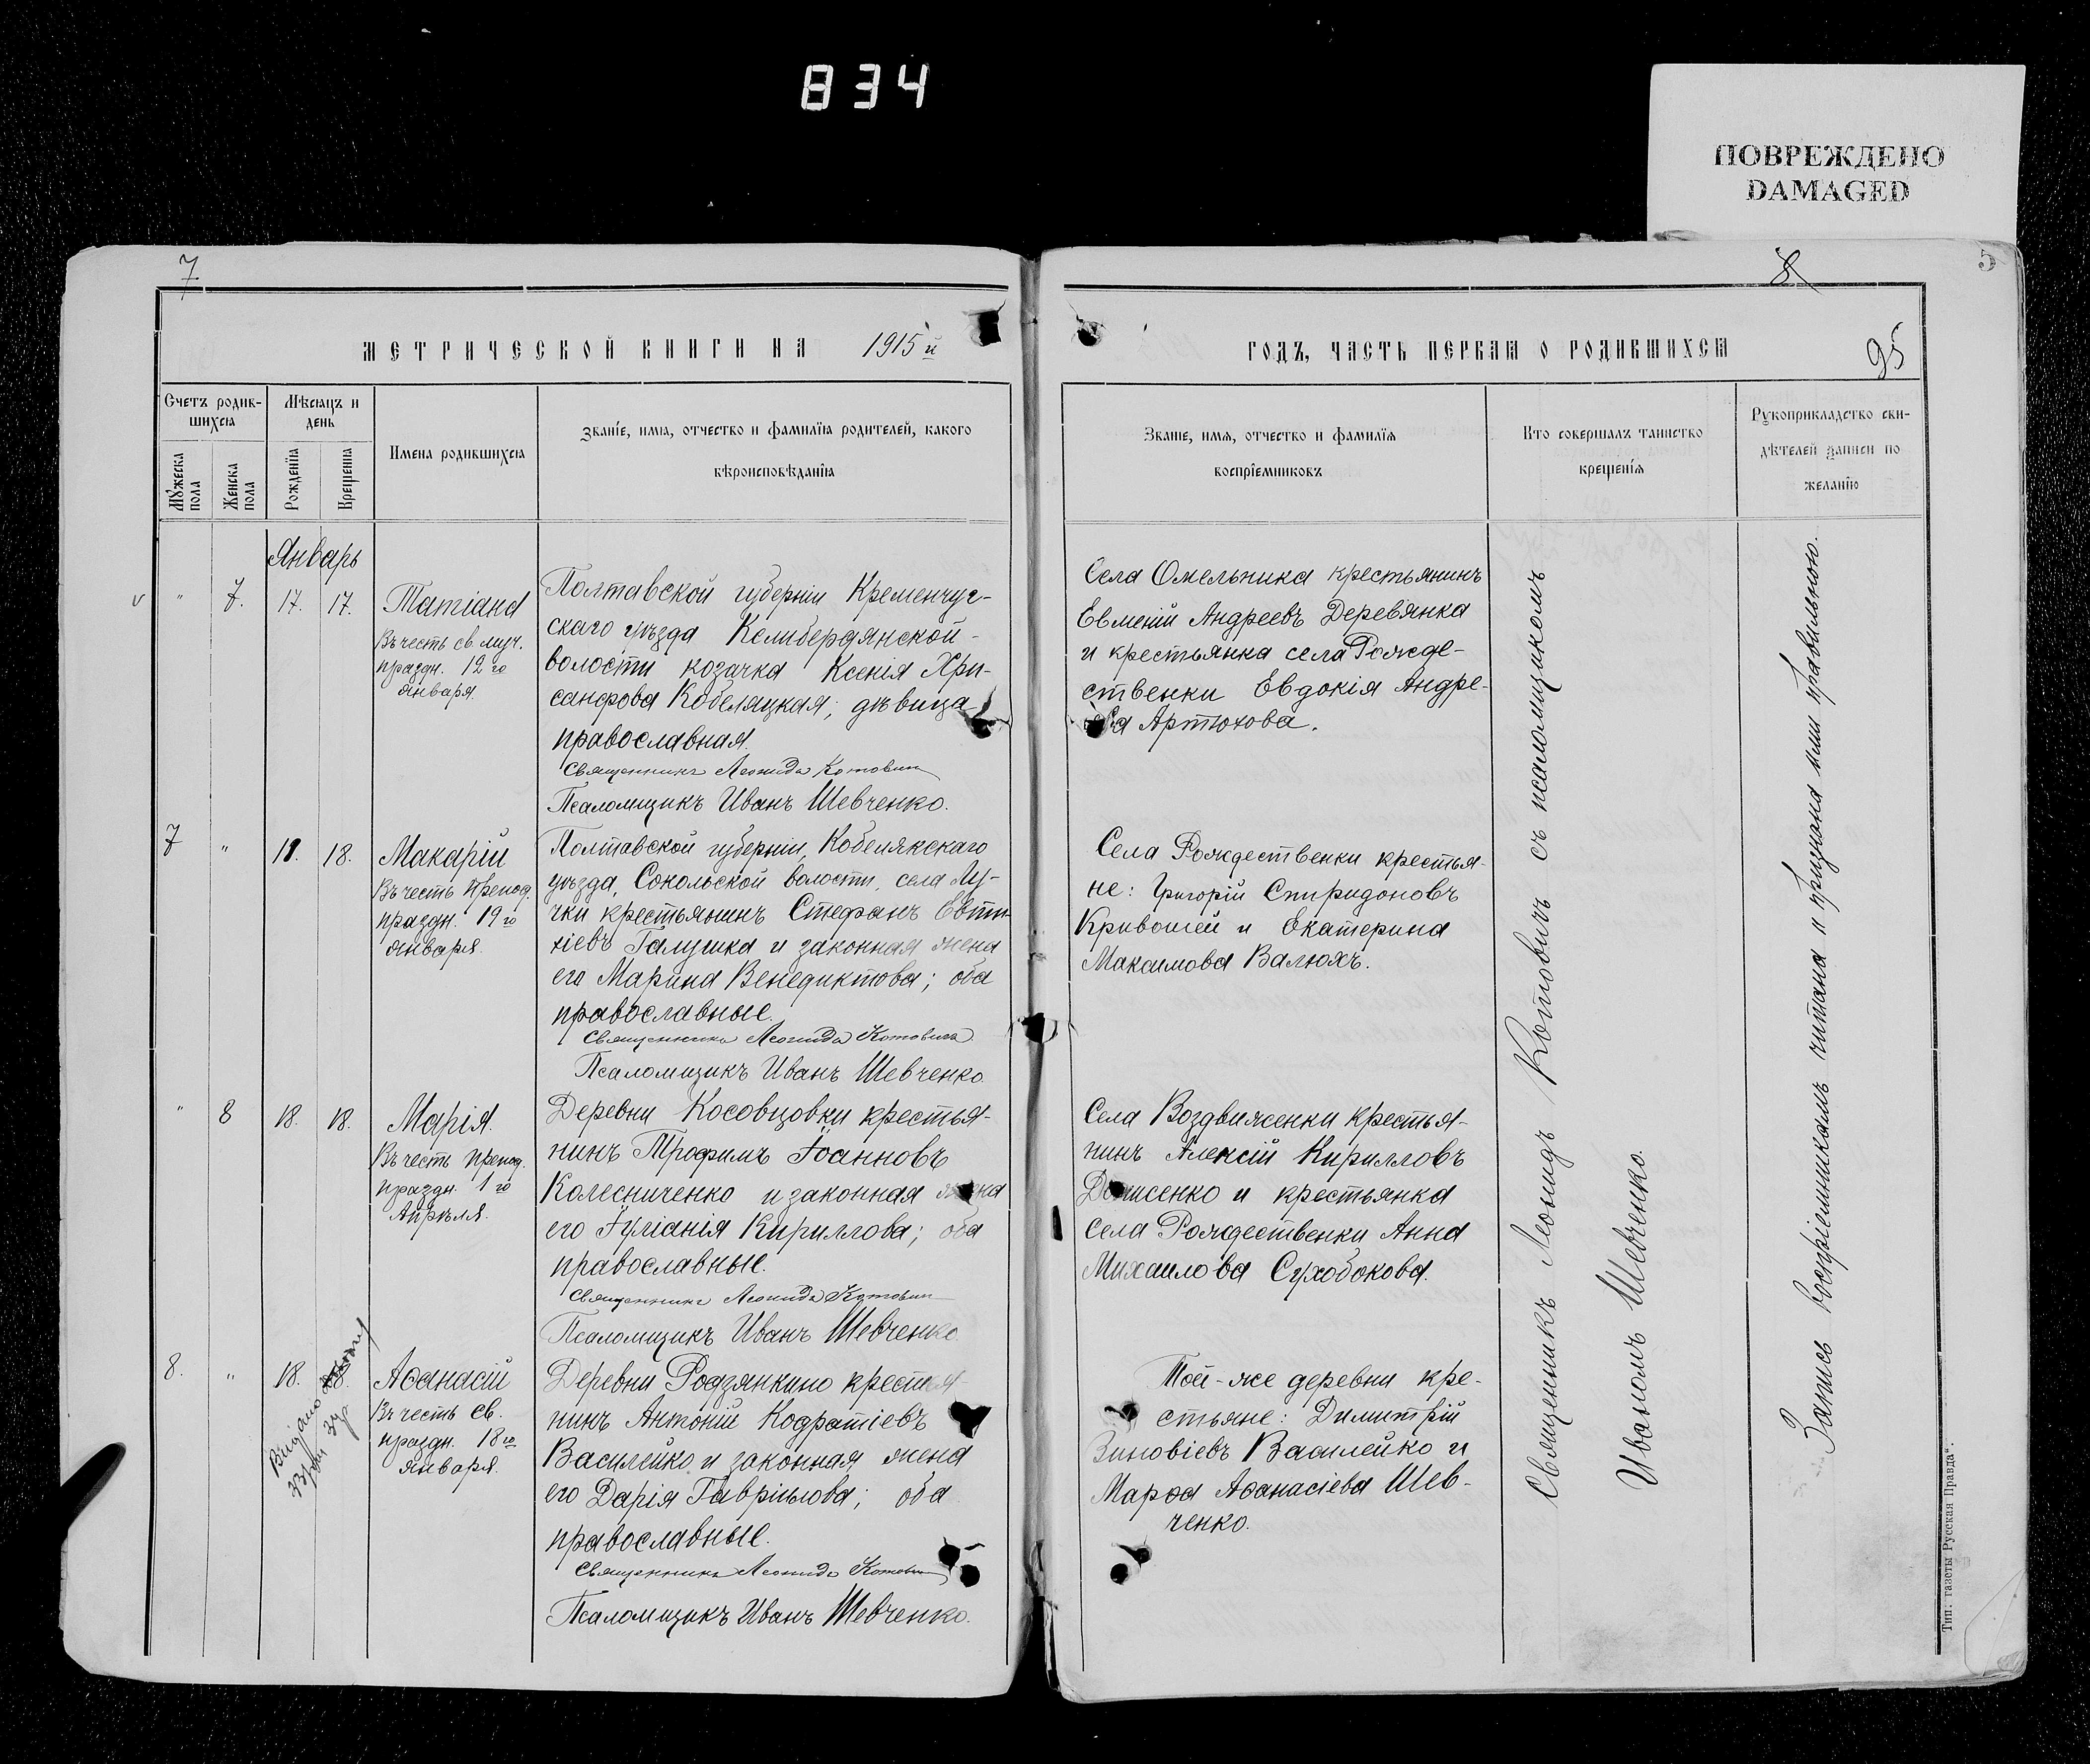 834
ПОВРЕЖДЕНО
DAMAGED
7
МЕТРИЧЕСКОЙ КНИГИ НА 1915 й
Счетъ родив-
шихся
Мѣсяцъ и
день
Мужеска
пола
Женска
пола
Рожденїя
Крещенїя
Имена родившихся
Званїе, имя, отчество и фамилїя родителей, какого
вѣроисповѣданїя
Январь
v " 7. 17. 17.
Татіана
Въ честь св. муч.
праздн. 12го
января.
Полтавской губерніи Кременчуг-
скаго уѣзда Келибердянской
волости козачка Ксенія Хри-
санфова Кобеляцкая; дѣвица
православная.
Священникъ Леонидъ Котовичъ
Псаломщикъ Иванъ Шевченко.
7 " 11. 18.
Макарій
Въ честь Препод.
праздн. 19го
января.
Полтавской губерніи, Кобелякскаго
уѣзда, Сокольской волости, села Лу-
чки крестьянинъ Стефанъ Евти-
хіевъ Галушка и законная жена
его Марина Венедиктова; оба
православные.
Священникъ Леонидъ Котовичъ
Псаломщикъ Иванъ Шевченко.
" 8 18. 18.
Марія.
Въ честь препод.
праздн. 1го
Апрѣля.
Деревни Косовцовки крестья-
нинъ Трофимъ Іоанновъ
Колесниченко и законная жена
его Іуліанія Кириллова; оба
православные.
Священникъ Леонидъ Котовичъ
Псаломщикъ Иванъ Шевченко
8. " 18. 18.
Аѳанасій
Въ честь св.
праздн. 18го
января.
Деревни Родзянкино крестья-
нинъ Антоній Кодратіевъ
Василейко и законная жена
его Дарія Гавріилова; оба
православные.
Священникъ Леонидъ Котовичъ
Псаломщикъ Иванъ Шевченко.
8
5
ГОДЪ, ЧАСТЬ ПЕРВАЯ О РОДИВШИХСЯ
95
Званїе, имя, отчество и фамилїя
воспрїемниковъ
Кто совершалъ таинство
крещенїя
Рукоприкладство сви-
дѣтелей записи по
желанїю
Села Омельника крестьянинъ
Евменій Андреевъ Деревянка
и крестьянка села Рожде-
ственки Евдокія Андре-
ева Артюхова.
Села Рождественки крестья-
не: Григорій Спиридоновъ
Кривошей и Екатерина
Максимова Валюхъ.
Села Воздвиженки крестья-
нинъ Алексій Кирилловъ
Денисенко и крестьянка
села Рождественки Анна
Михаилова Сухобокова.
Той-же деревни кре-
стьяне: Димитрій
Зиновіевъ Василейко и
Марфа Аѳанасіева Шев-
ченко.
Священникъ Леонидъ Котовичъ съ псаломщикомъ
Иваномъ Шевченко.
Запись воспріемникамъ читана и признана ими правильною.
Тип. газеты Русская Правда".